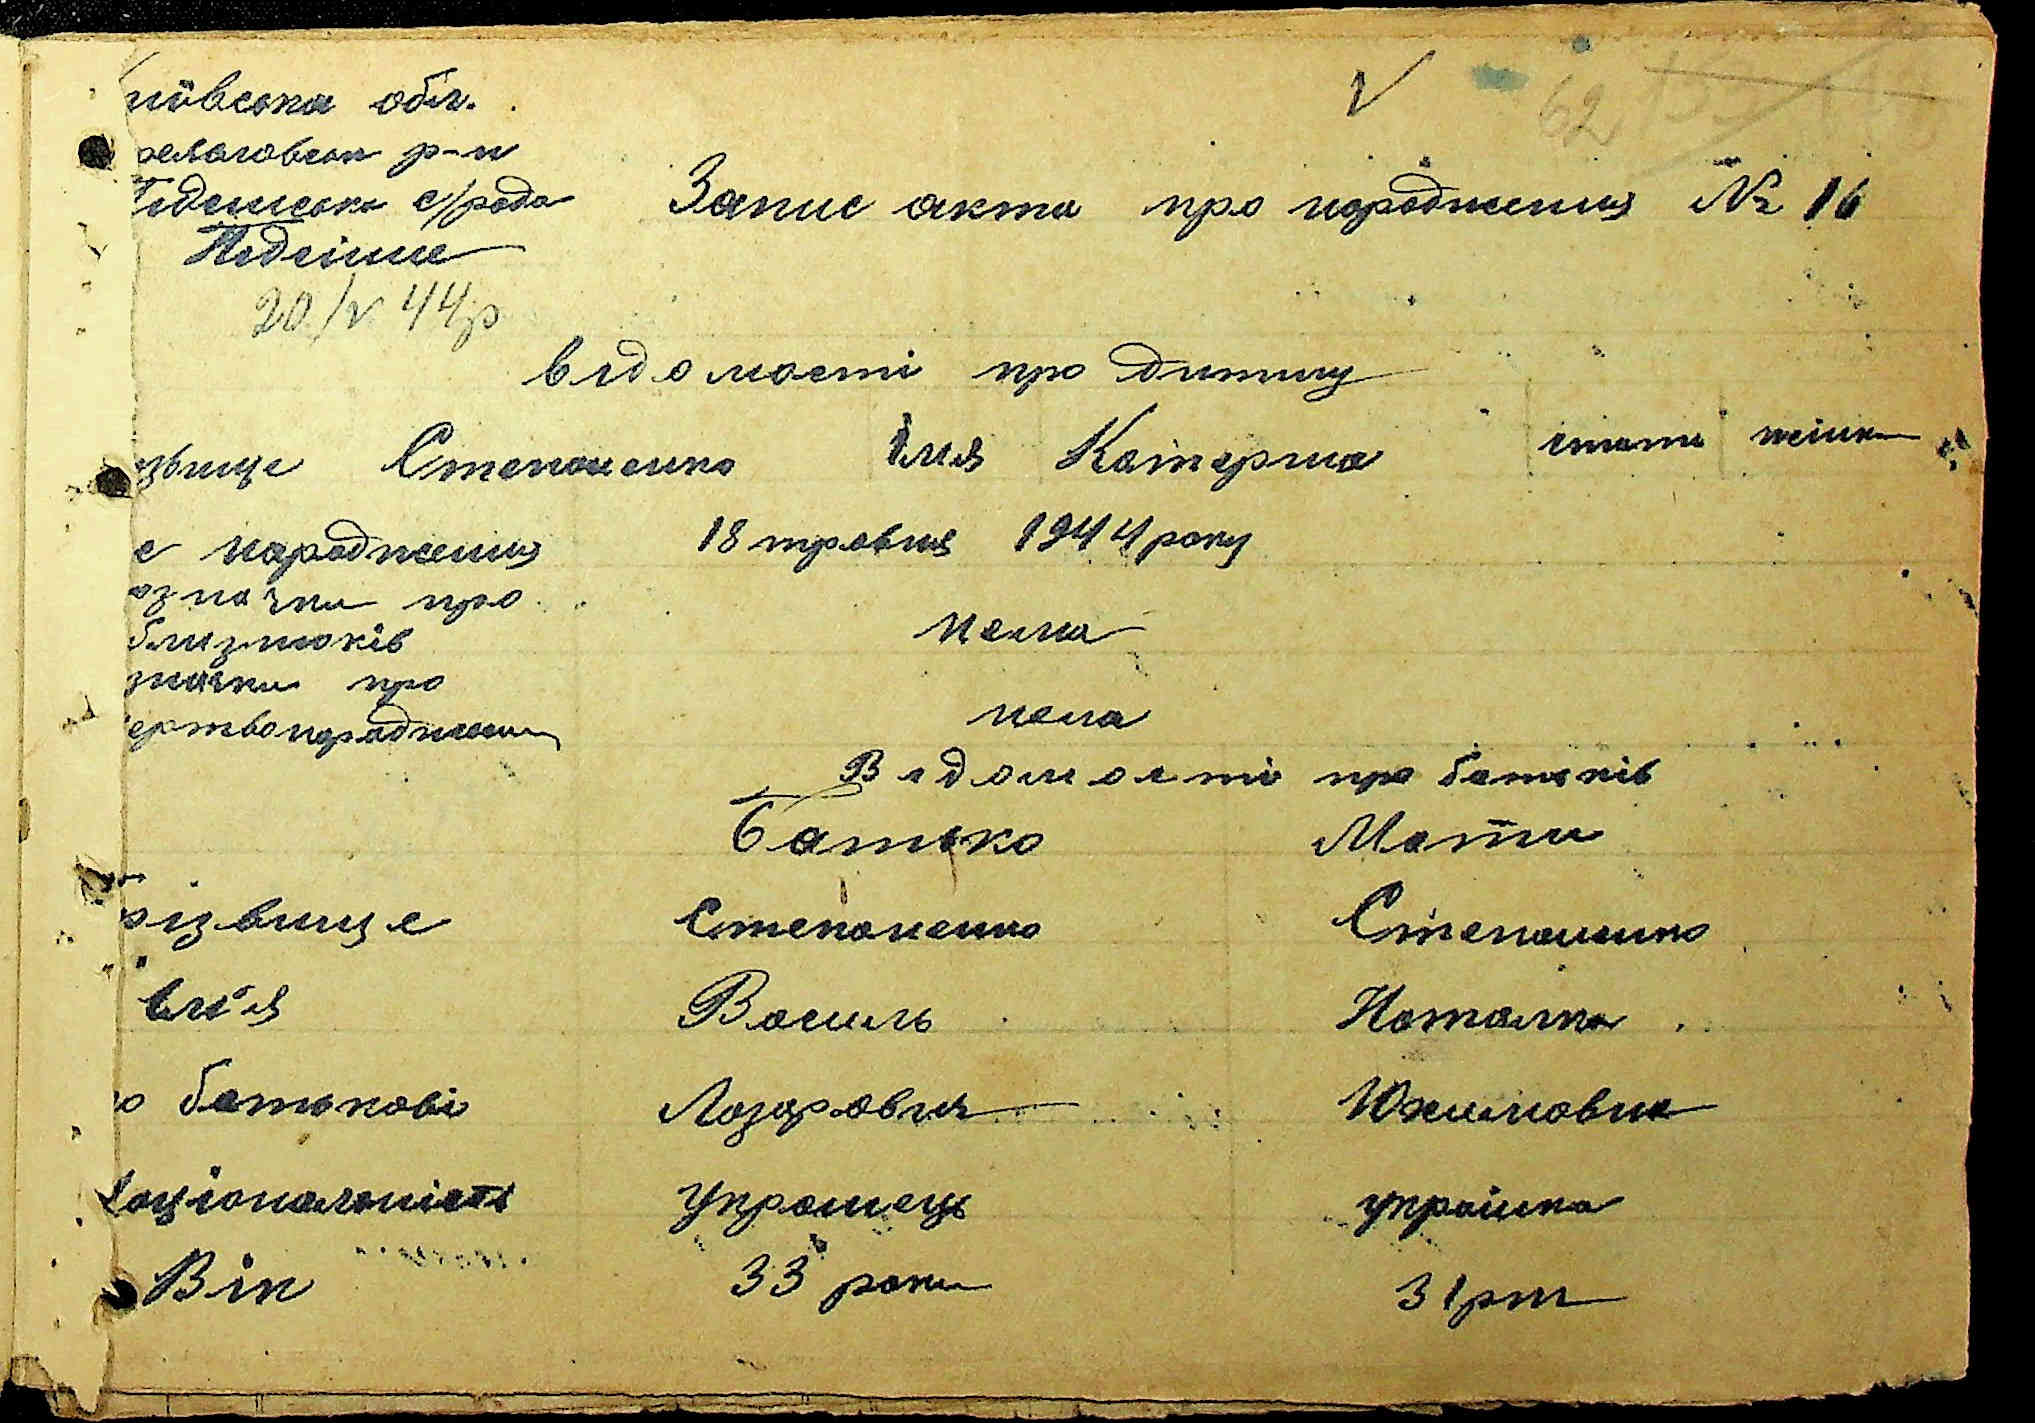 иівська обл.
р-н
с/рада
20/V 44р
62
Запис акта про народження № 16
відомості про дитину
звище Степаненко імя Катерина стать жіноч
е народження 18 травня 1944 року
значки про
близнюків нема
значки про
ертвонароджени нема
Відомості про батьків
Батько Мати
різвище Степаненко Степаненко
імя Василь Наталка
о батькові Лазарович Юхимовна
аціональність Українець українка
Вік 33 роки 31 рік